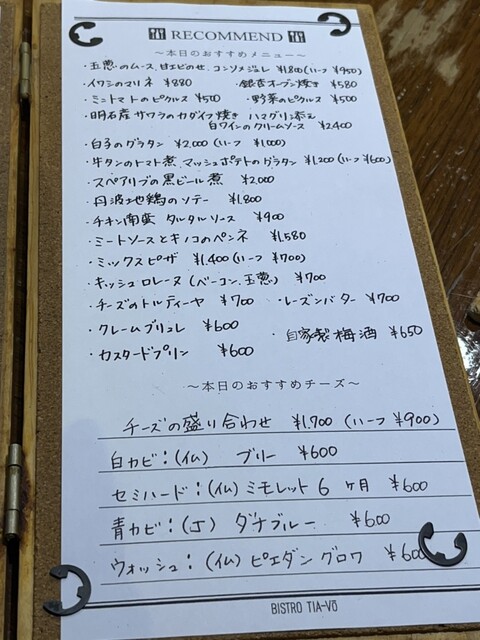 RECOMMEND
～本日のおすすめメニュー～
・玉葱のムース、甘エビのせ、コンソメジュレ ¥1,800(ハーフ ¥950)
・イワシのマリネ ¥880 ・銀杏オーブン焼き ¥580
・ミニトマトのピクルス ¥500 ・野菜のピクルス ¥500
・明石産サワラのカダイフ焼き ハマグリ添え
白ワインのクリームソース ¥2,400
・白子のグラタン ¥2,000(ハーフ ¥1,000)
・牛タンのトマト煮 マッシュポテトのグラタン ¥1,200(ハーフ ¥600)
・スペアリブの黒ビール煮 ¥2,000
・丹波地鶏のソテー ¥1,800
・チキン南蛮 タルタルソース ¥900
・ミートソースとキノコのペンネ ¥1,580
・ミックスピザ ¥1,400(ハーフ ¥700)
・キッシュロレーヌ (ベーコン、玉葱) ¥700
・チーズのトルティーヤ ¥700 ・レーズンバター ¥700
・クレームブリュレ ¥600 ・自家製梅酒 ¥650
・カスタードプリン ¥600
～本日のおすすめチーズ～
チーズの盛り合わせ ¥1,700 (ハーフ ¥900)
白カビ:(仏) ブリー ¥600
セミハード:(仏)ミモレット 6 ヶ月 ¥600
青カビ:(J) ダナブルー ¥600
ウォッシュ:(仏)ピエダングロワ ¥600
BISTRO TIA-VŌ